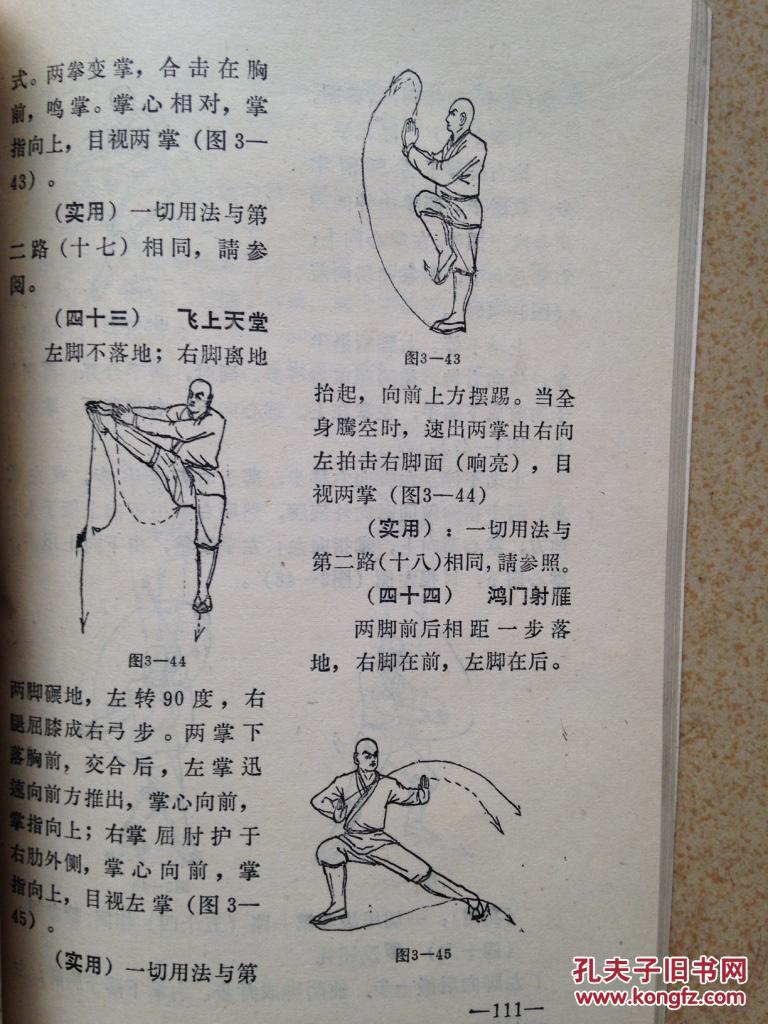 式。两拳变掌，合击在胸
前，鸣掌。掌心相对，掌
指向上，目视两掌（图3—
43）。
（实用）一切用法与第
二路（十七）相同，請参
阅。
（四十三） 飞上天堂
左脚不落地；右脚离地
图3—43
图3—44
抬起，向前上方摆踢。当全
身騰空时，速出两掌由右向
左拍击右脚面（响亮），目
视两掌（图3—44）
（实用）：一切用法与
第二路（十八）相同，請参照。
（四十四） 鸿门射雁
两脚前后相距一步落
地，右脚在前，左脚在后。
两脚碾地，左转90度，右
腿屈膝成右弓步。两掌下
落胸前，交合后，左掌迅
速向前方推出，掌心向前，
掌指向上；右掌屈肘护于
右肋外侧，掌心向前，掌
指向上，目视左掌（图3—
45）。
（实用）一切用法与第
图3—45
—111—
孔夫子旧书网
www.kongfz.com